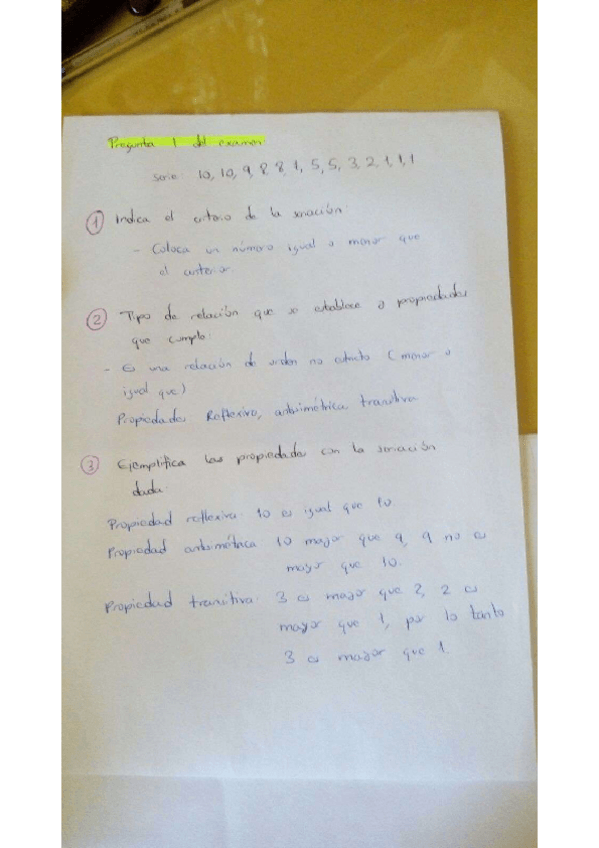 Pregunta 1 del examen:
Serie: 10, 10, 9, 8, 8, 1, 5, 5, 3, 2, 1, 1, 1
① Indica el criterio de la seriación:
- Coloca un número igual o menor que
el anterior.
② Tipo de relación que se establece o propiedades
que cumple:
- Es una relación de orden no estricto (menor o
igual que)
Propiedades Reflexiva, antisimétrica transitiva
③ Ejemplifica las propiedades con la seriación
dada:
Propiedad reflexiva: 10 es igual que 10
Propiedad antisimétrica 10 mayor que 9, 9 no es
mayor que 10.
Propiedad transitiva: 3 es mayor que 2, 2 es
mayor que 1, por lo tanto
3 es mayor que 1.